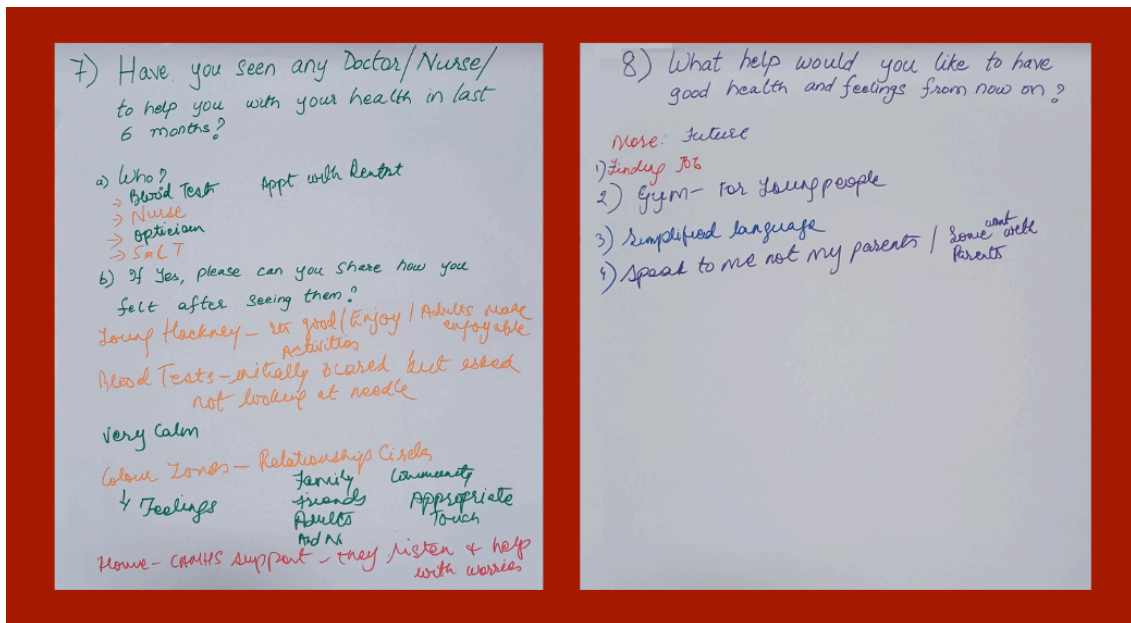 7) Have you seen any Doctor/Nurse/
to help you with your health in last
6 months?
a) Who?
→ Blood Test
Appt with Dentist
→ Nurse
→ optician
→ SALT
b) If Yes, please can you share how you
felt after seeing them?
Young Hackney – good/Enjoy/Adults make
Activities enjoyable
Blood Tests – initially scared but asked
not looking at needle
Very Calm
Colour Zones – Relationship Circles
↳ Feelings
Family Community
Friends Appropriate
Adults Touch
Home – CAMHS support – they listen & help
with worries
8) What help would you like to have
good health and feelings from now on?
More: Future
1) Finding Job
2) Gym – For Young people
3) Simplified language
4) Speak to me not my parents / Some want with
Parents